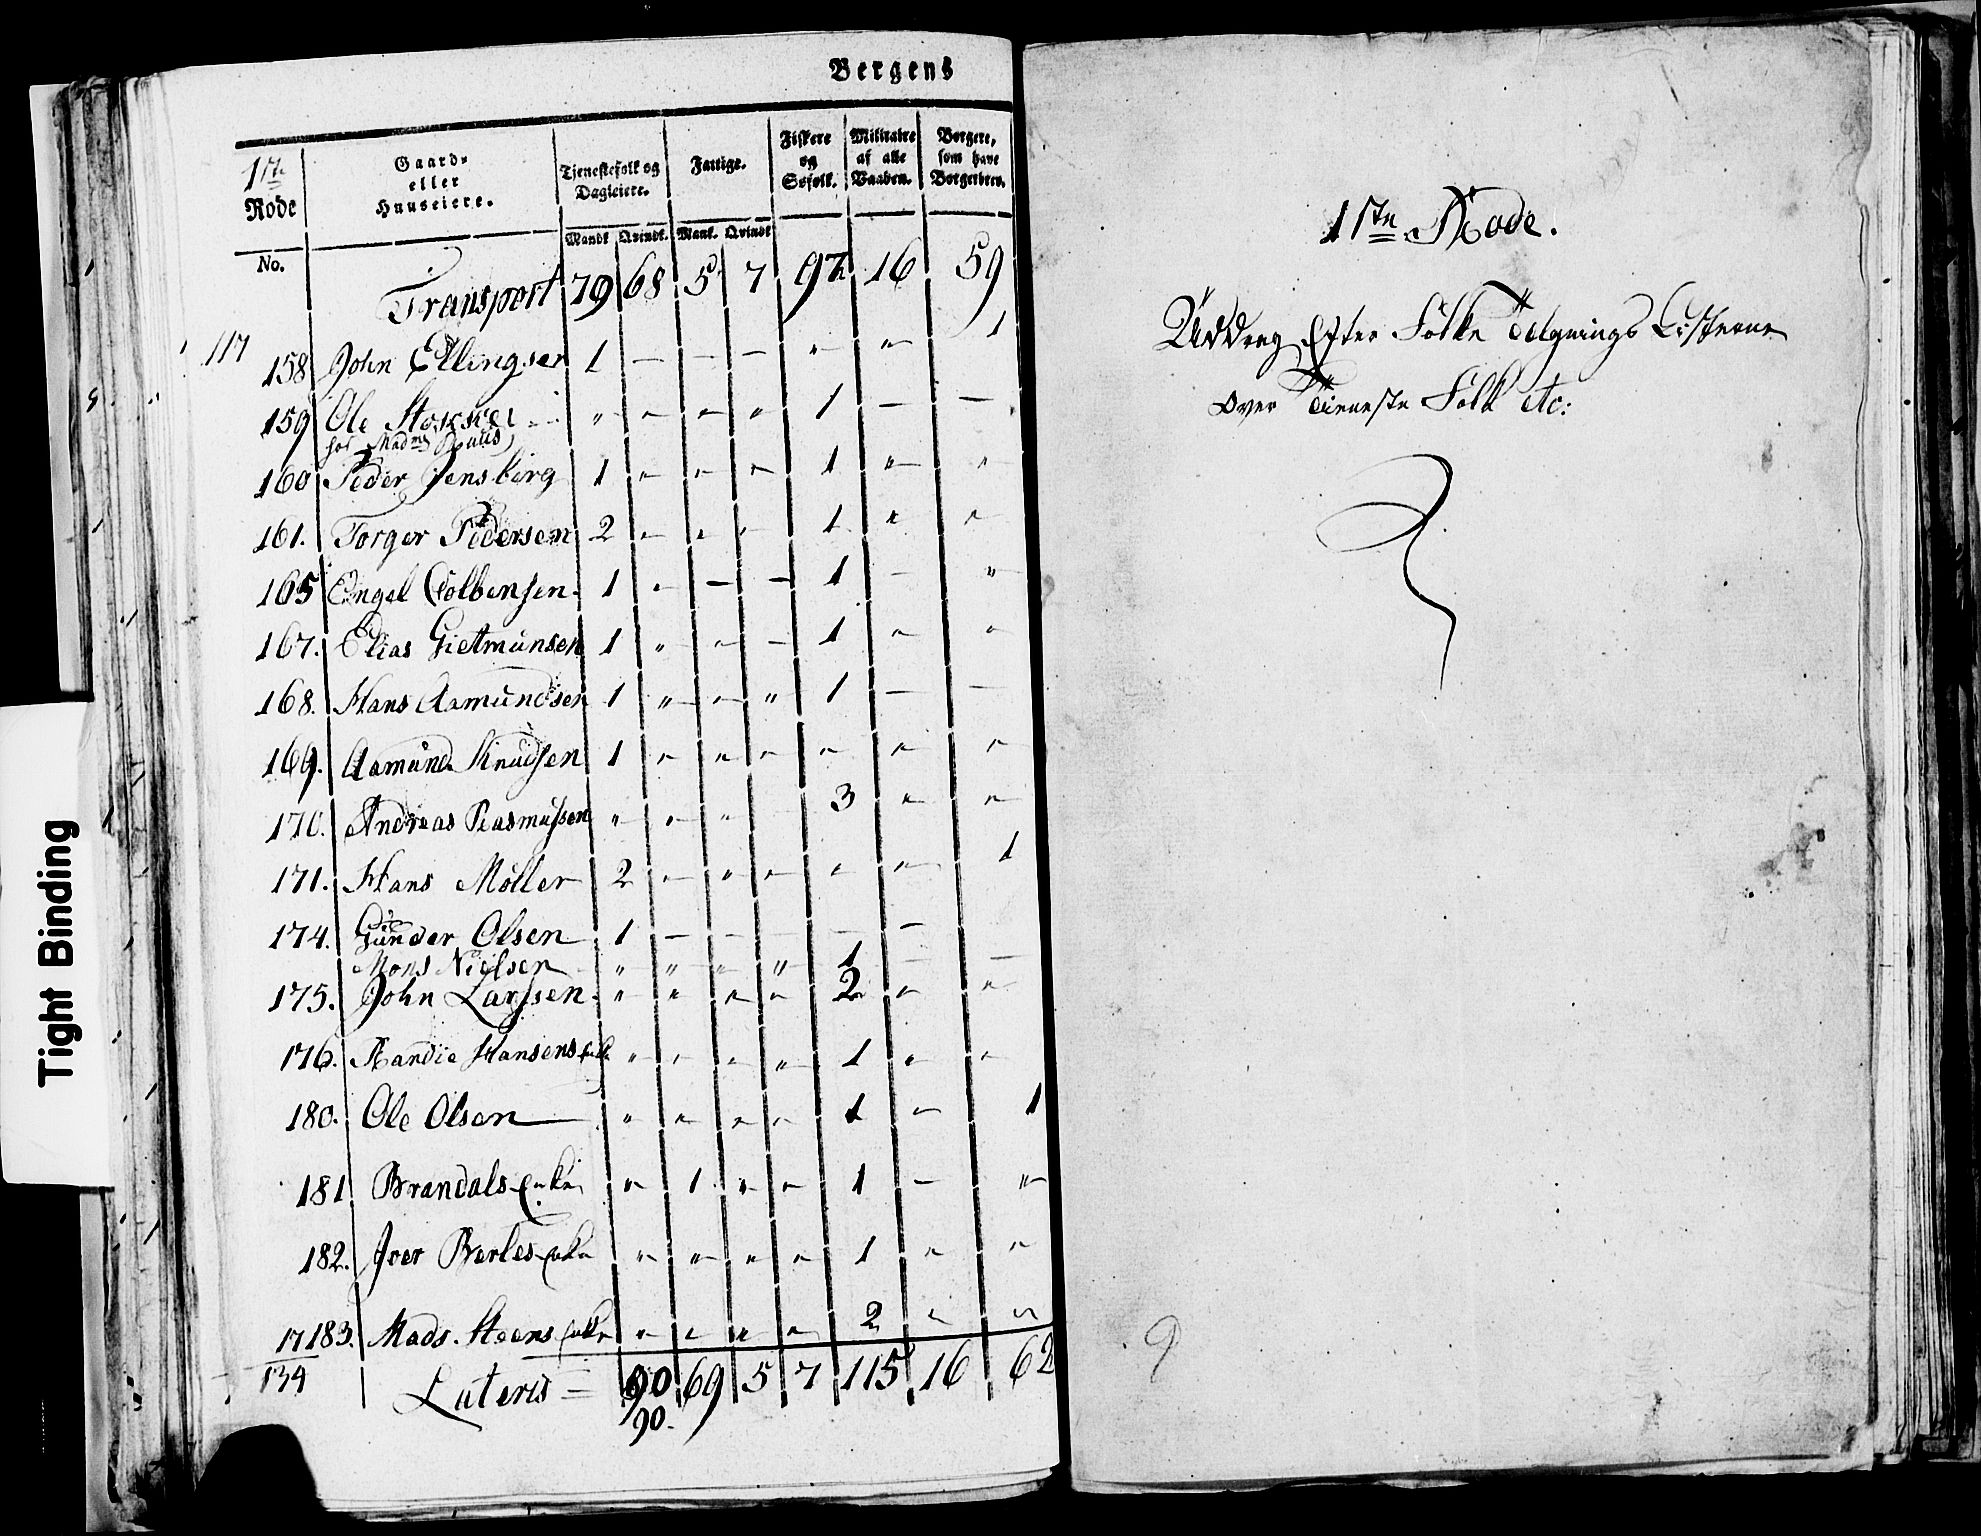 Bergens
1ste Rode | Gaard- eller Huuseiere. | Tjenestefolk og Dagleiere. | Fattige. | Fiskere og Søfolk. | Militaire af alle Vaaben. | Borgere, som have Borgerbrev.
No. | Mandk. Qvindk. | Mank. Qvindk.
Transport 79 68 5 7 97 16 59
117
158 John Ellingsen 1 — — — " " 1
159 Ole " " " " 1 — —
hos Madme
160 Peder Jensberg 1 " " " 1 " "
161. Torger Pedersen 2 " " " 1 " "
165 Engel Colbensen 1 " — — 1 — "
167. Elias Gietmunsen 1 " " — 1 " "
168. Hans Aamundsen 1 " " " 1 — —
169. Aamund Knudsen 1 " " " " " "
170. Andreas Rasmussen " " " 3 " "
171. Hans Møller 2 " " " " " 1
174. Gunder Olsen 1 — — — — —
Mons Nielsen " " " " 1 — —
175. John Larssen " " " " 2 " "
176. Randie Hansens enke " " " " 1 " "
180. Ole Olsen " " " " 1 " 1
181 Brandals enke " 1 " " 1 — "
182. Iver Berles enke " " " " 1 " "
17 183. Mads. Steens enke " " " " 2 " "
134
Lateris = 90 69 5 7 115 16 62
90.
1ste Rode.
Uddrag Efter Folke Tælgnings Listerne
Over Tieneste Folk etc:
9
Tight Binding